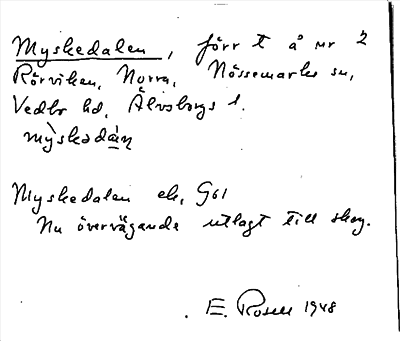 Myskedalen, förr t å nr 2
Rörviken, Norra, Nössemarks sn,
Vedbo hd, Älvsborgs l.
mỳskadán
Myskedalen ek, G61
Nu övervägande utlagt till skog.
E. Rosell 1948